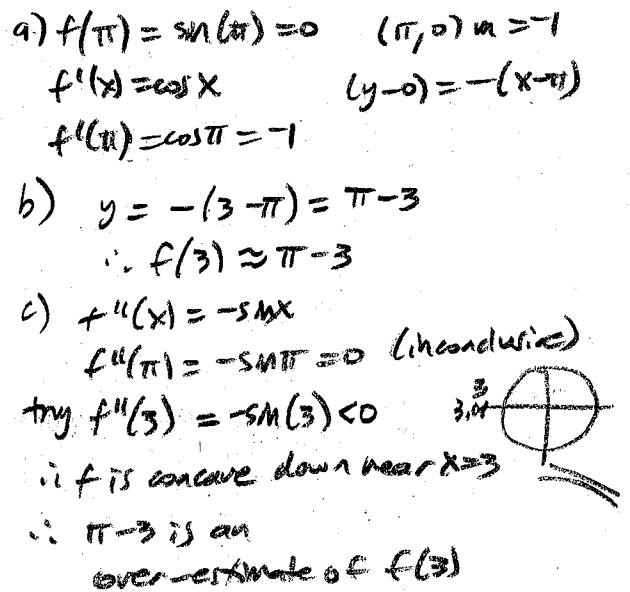 a) f(π) = sin(π) = 0 (π, 0) m = -1
f'(x) = cos x (y-0) = -(x-π)
f'(π) = cos π = -1
b) y = -(3-π) = π-3
∴ f(3) ≈ π-3
c) f''(x) = -sin x
f''(π) = -sin π = 0 (inconclusive)
try f''(3) = -sin(3) < 0
3
3.14
∴ f is concave down near x=3
∴ π-3 is an
over-estimate of f(3)